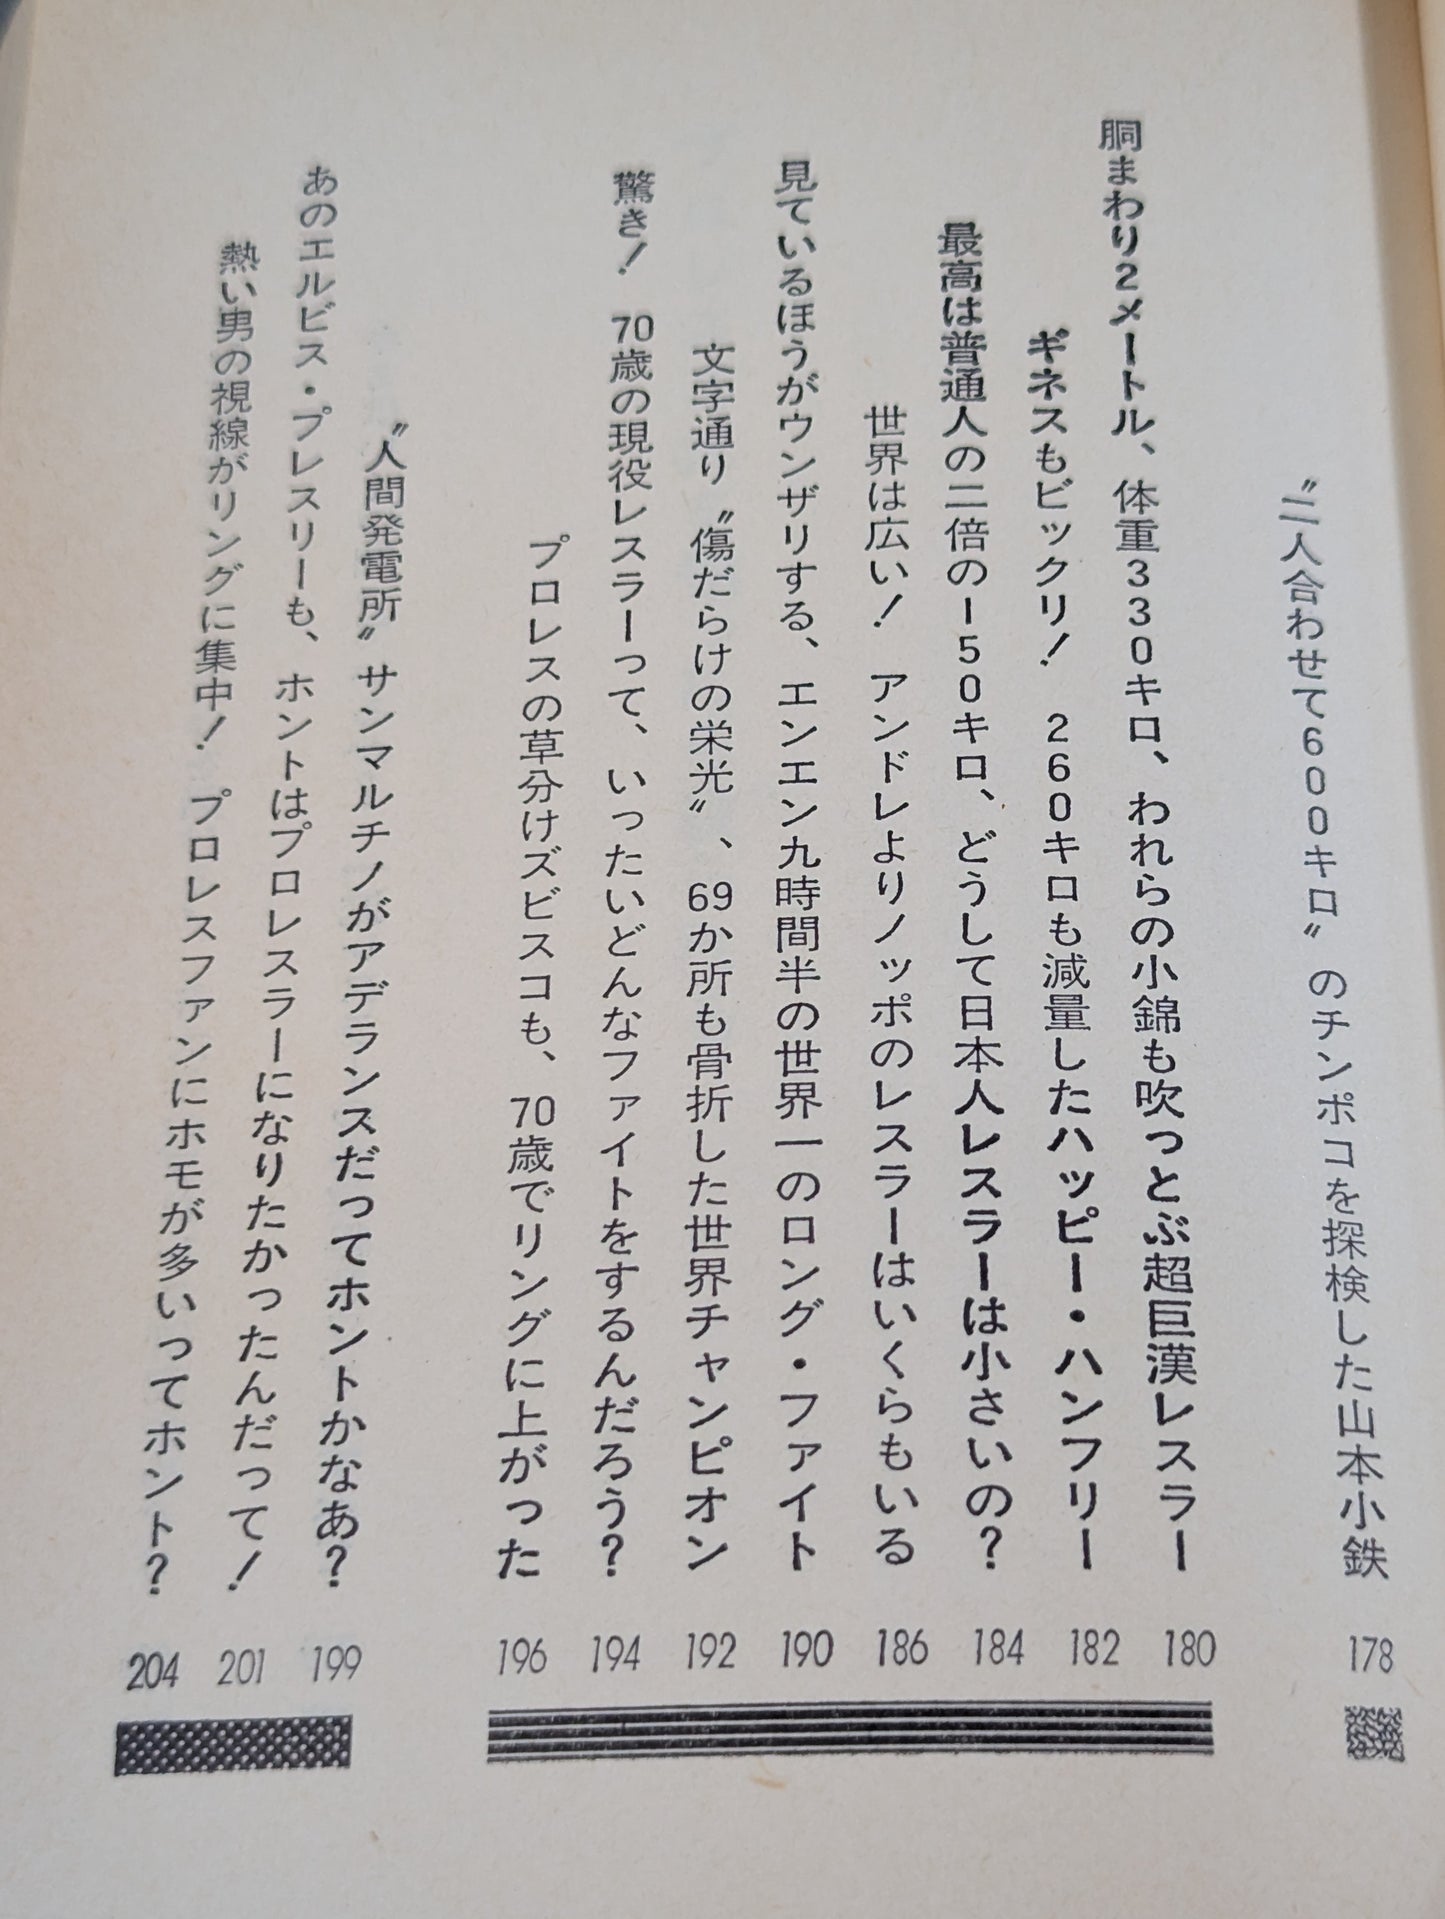 〝二人合わせて600キロ〟のチンポコを探検した山本小鉄 178
胴まわり2メートル、体重330キロ、われらの小錦も吹っとぶ超巨漢レスラー 180
ギネスもビックリ！ 260キロも減量したハッピー・ハンフリー 182
最高は普通人の二倍の150キロ、どうして日本人レスラーは小さいの？ 184
世界は広い！ アンドレよりノッポのレスラーはいくらもいる 186
見ているほうがウンザリする、エンエン九時間半の世界一のロング・ファイト 190
文字通り〝傷だらけの栄光〟、69か所も骨折した世界チャンピオン 192
驚き！ 70歳の現役レスラーって、いったいどんなファイトをするんだろう？ 194
プロレスの草分けズビスコも、70歳でリングに上がった 196
〝人間発電所〟サンマルチノがアデランスだってホントかなあ？ 199
あのエルビス・プレスリーも、ホントはプロレスラーになりたかったんだって！ 201
熱い男の視線がリングに集中！ プロレスファンにホモが多いってホント？ 204